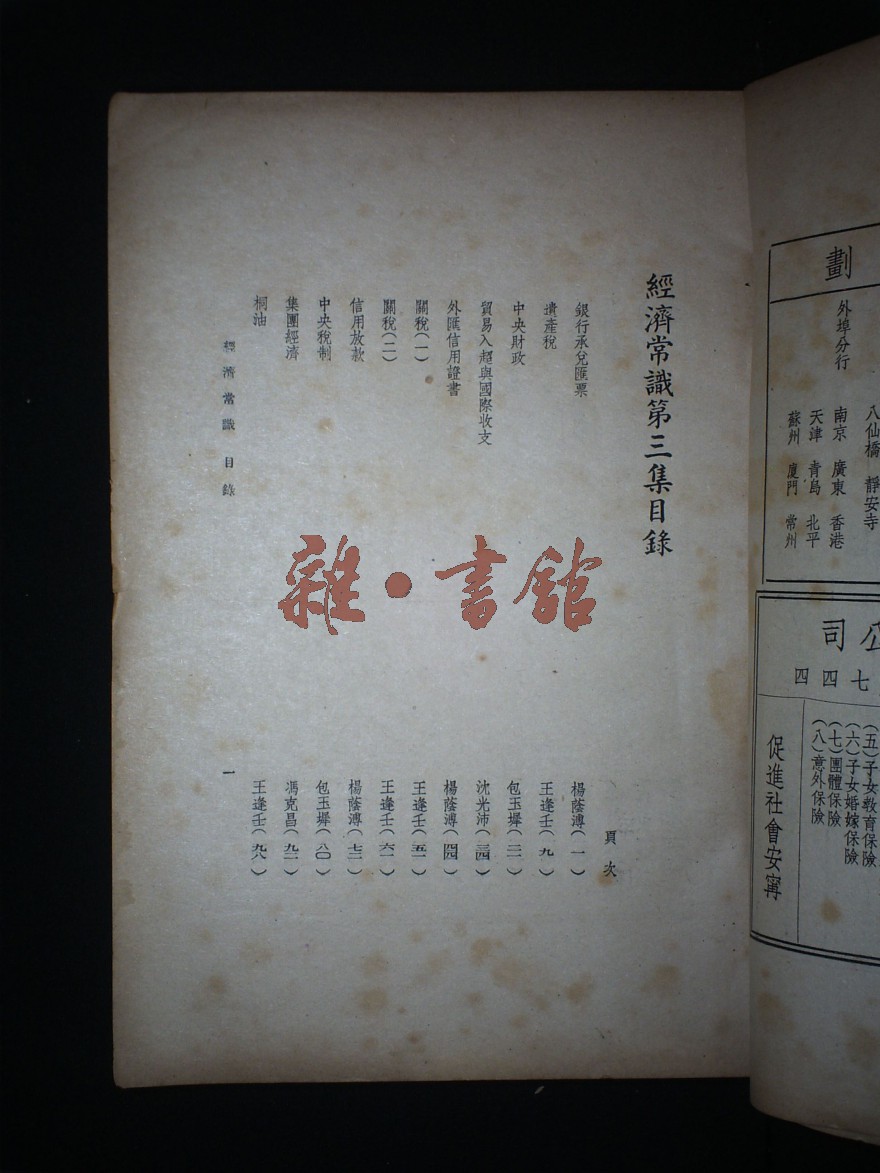 劃
外埠分行
八仙橋 靜安寺
南京 廣東 香港
天津 青島 北平
蘇州 廈門 常州
公司
七四四
(五)子女教育保險
(六)子女婚嫁保險
(七)團體保險
(八)意外保險
促進社會安寧
經濟常識第三集目錄
頁次
銀行承兌匯票 楊蔭溥(一)
遺產稅 王逢壬(一九)
中央財政 包玉墀(二二)
貿易入超與國際收支 沈光沛(三四)
外匯信用證書 楊蔭溥(四四)
關稅(一) 王逢壬(五一)
關稅(二) 王逢壬(六一)
信用放款 楊蔭溥(七二)
中央稅制 包玉墀(八〇)
集團經濟 馮克昌(九二)
桐油 王逢壬(九八)
經濟常識 目錄 一
雜·書館